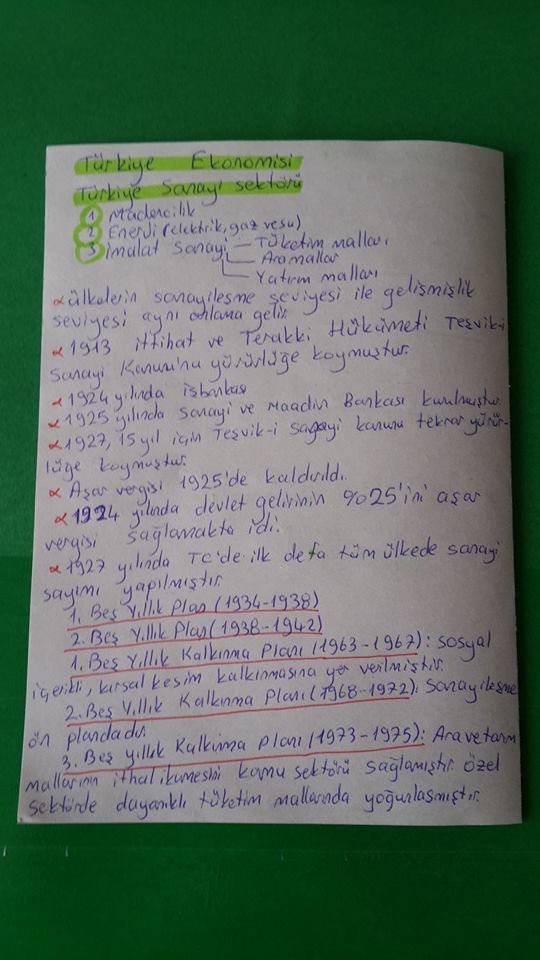 Türkiye Ekonomisi
Türkiye Sanayi sektörü
1 Madencilik
2 Enerji (elektrik, gaz ve su)
3 imalat Sanayi - Tüketim malları
Ara mallar
Yatırım malları
α ülkelerin sanayileşme seviyesi ile gelişmişlik
seviyesi aynı anlama gelir.
α 1913 ittihat ve Terakki Hükümeti Teşvik-i
Sanayi Kanunu'nu yürürlüğe koymuştur.
α 1924 yılında işbankası
α 1925 yılında Sanayi ve Maadin Bankası kurulmuştur.
α 1927, 15 yıl için Teşvik-i sanayi kanunu tekrar yürür-
lüğe koymuştur.
α Aşar vergisi 1925'de kaldırıldı.
α 1924 yılında devlet gelirinin %25'ini aşar
vergisi sağlamakta idi.
α 1927 yılında TC'de ilk defa tüm ülkede sanayi
sayımı yapılmıştır.
1. Beş Yıllık Plan (1934-1938)
2. Beş Yıllık Plan (1938-1942)
1. Beş Yıllık Kalkınma Planı (1963-1967): sosyal
içerikli, kırsal kesim kalkınmasına yer verilmiştir.
2. Beş Yıllık Kalkınma Planı (1968-1972): Sanayileşme
ön plandadır.
3. Beş yıllık Kalkınma Planı (1973-1975): Ara ve tarım
mallarının ithal ikamesini kamu sektörü sağlamıştır. özel
sektörde dayanıklı tüketim mallarında yoğunlaşmıştır.